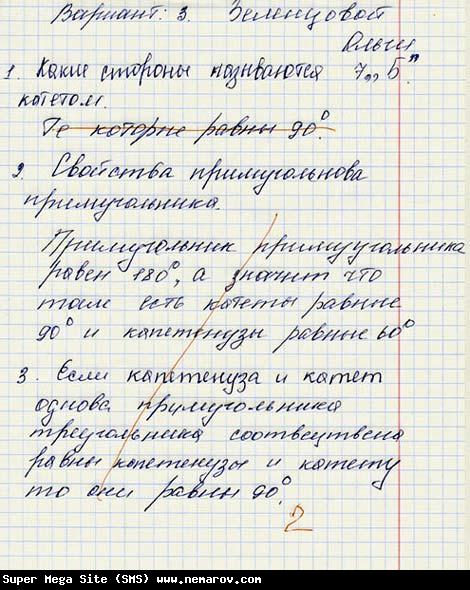 Вариант: 3. Зеленцовой
Ольги
1. Какие стороны называются 7 „Б"
катетом.
Те которые равны 90°.
2. Свойства примугольнова
примугольника.
Примугольник примуугольника
равен 180°, а значит что
там есть катеты равные
90° и капетенузы равные 60°
3. Если капетенуза и катет
однова прумугольника
треугольника соотвеутвена
равны капетенузы и катету
то они равны 90°.
2
Super Mega Site (SMS) www.nemarov.com